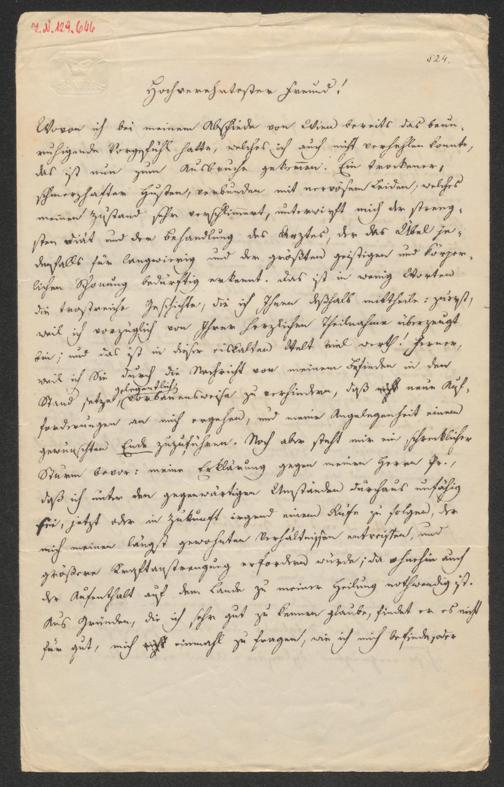 I.N. 129.646
524.
Hochverehrtester Freund!
Wovon ich bei meinem Abschiede von Wien bereits das beun-
ruhigende Vorgefühl hatte, welches ich auch nicht verhehlen konnte,
das ist nun zum Ausbruche gekommen. Ein trockener,
schmerzhafter Husten, verbunden mit nervösen Leiden, welches
meinen Zustand sehr verschlimert, unterwirft mich der streng-
sten Diät und der Behandlung des Arztes, der das Übel je-
denfalls für langwierig und der größten geistigen und körper-
lichen Schonung bedürftig erkennt. Das ist in wenig Worten
die trostreiche Geschichte, die ich Ihnen deßhalb mittheile: zuerst,
weil ich vorzüglich von Ihrer herzlichen Theilnahme überzeugt
bin; und das ist in dieser eiskalten Welt viel werth! Ferner,
weil ich Sie durch die Nachricht von meinem Befinden in den
Stand setze, gelegentlich vorbauensweise zu verhindern, daß nicht neue Auf-
forderungen an mich ergehen, und meine Angelegenheit einem
gewünschten Ende zuzuführen. Noch aber steht mir ein schrecklicher
Sturm bevor: meine Erklärung gegen meinen Herrn Pr.,
daß ich unter den gegenwärtigen Umständen durchaus unfähig
sei, jetzt oder in Zukunft irgend einem Rufe zu folgen, der
mich meinen längst gewohnten Verhältnissen entreissen, und
größere Kraftanstrengung erfordern würde; da ohnehin auch
der Aufenthalt auf dem Lande zu meiner Heilung nothwendig ist.
Aus Gründen, die ich sehr gut zu kennen glaube, findet er es nicht
für gut, mich nicht einmahl zu fragen, wie ich mich befinde, oder